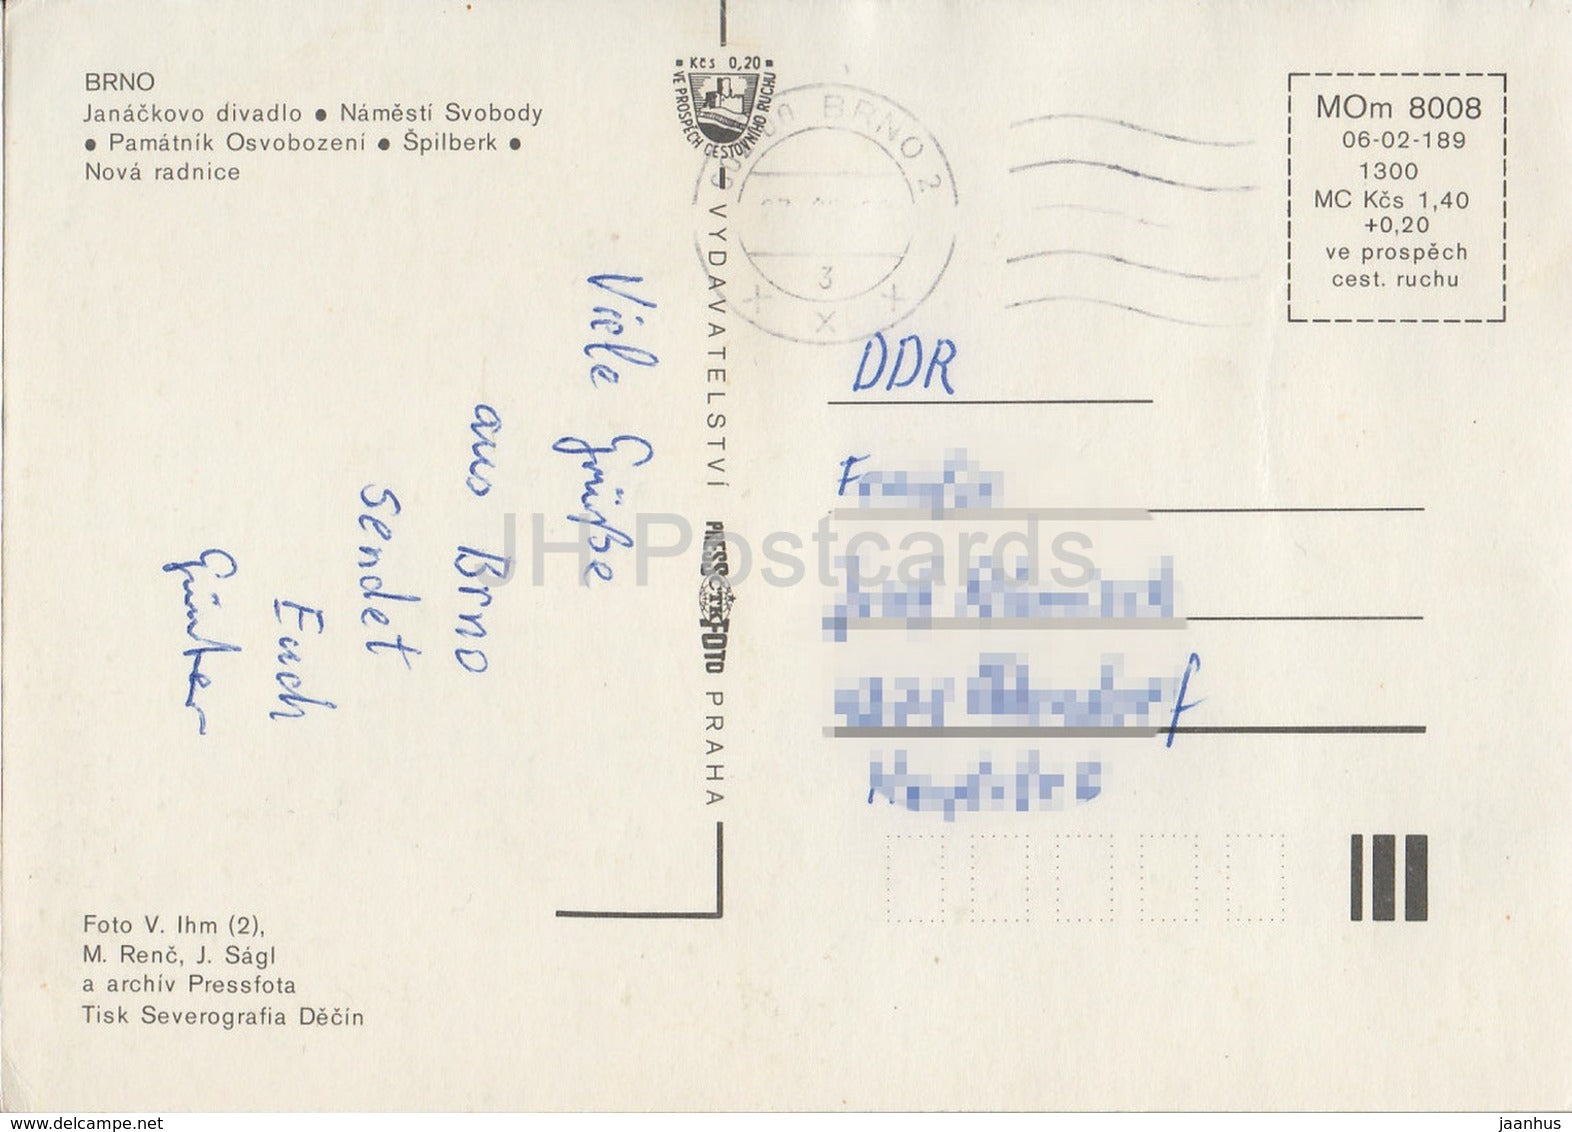 BRNO
Janáčkovo divadlo ● Náměstí Svobody
● Památník Osvobození ● Špilberk ●
Nová radnice
Kčs 0,20
VE PROSPĚCH CESTOVNÍHO RUCHU
BRNO 2
3
MOm 8008
06-02-189
1300
MC Kčs 1,40
+0,20
ve prospěch
cest. ruchu
Viele Grüße
aus Brno
sendet
Euch
Günter
VYDAVATELSTVÍ PRESSFOTO PRAHA
ČTK
DDR
JH Postcards
Foto V. Ihm (2),
M. Renč, J. Ságl
a archív Pressfota
Tisk Severografia Děčín
www.delcampe.net
jaanhus